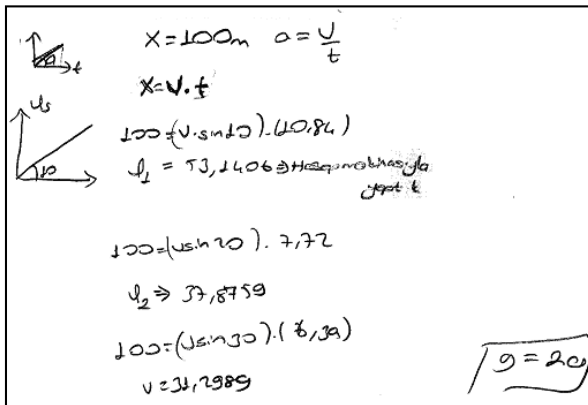 X=100m a=V/t
t
X=V.t
10
100=(V.sin10).(10,84)
V₁ = 53,1406 ⇒ Hesap makinasıyla
100=(Vsin20). 7,72
V₂ ⇒ 37,8759
100=(Vsin30).(6,39)
V=31,2989